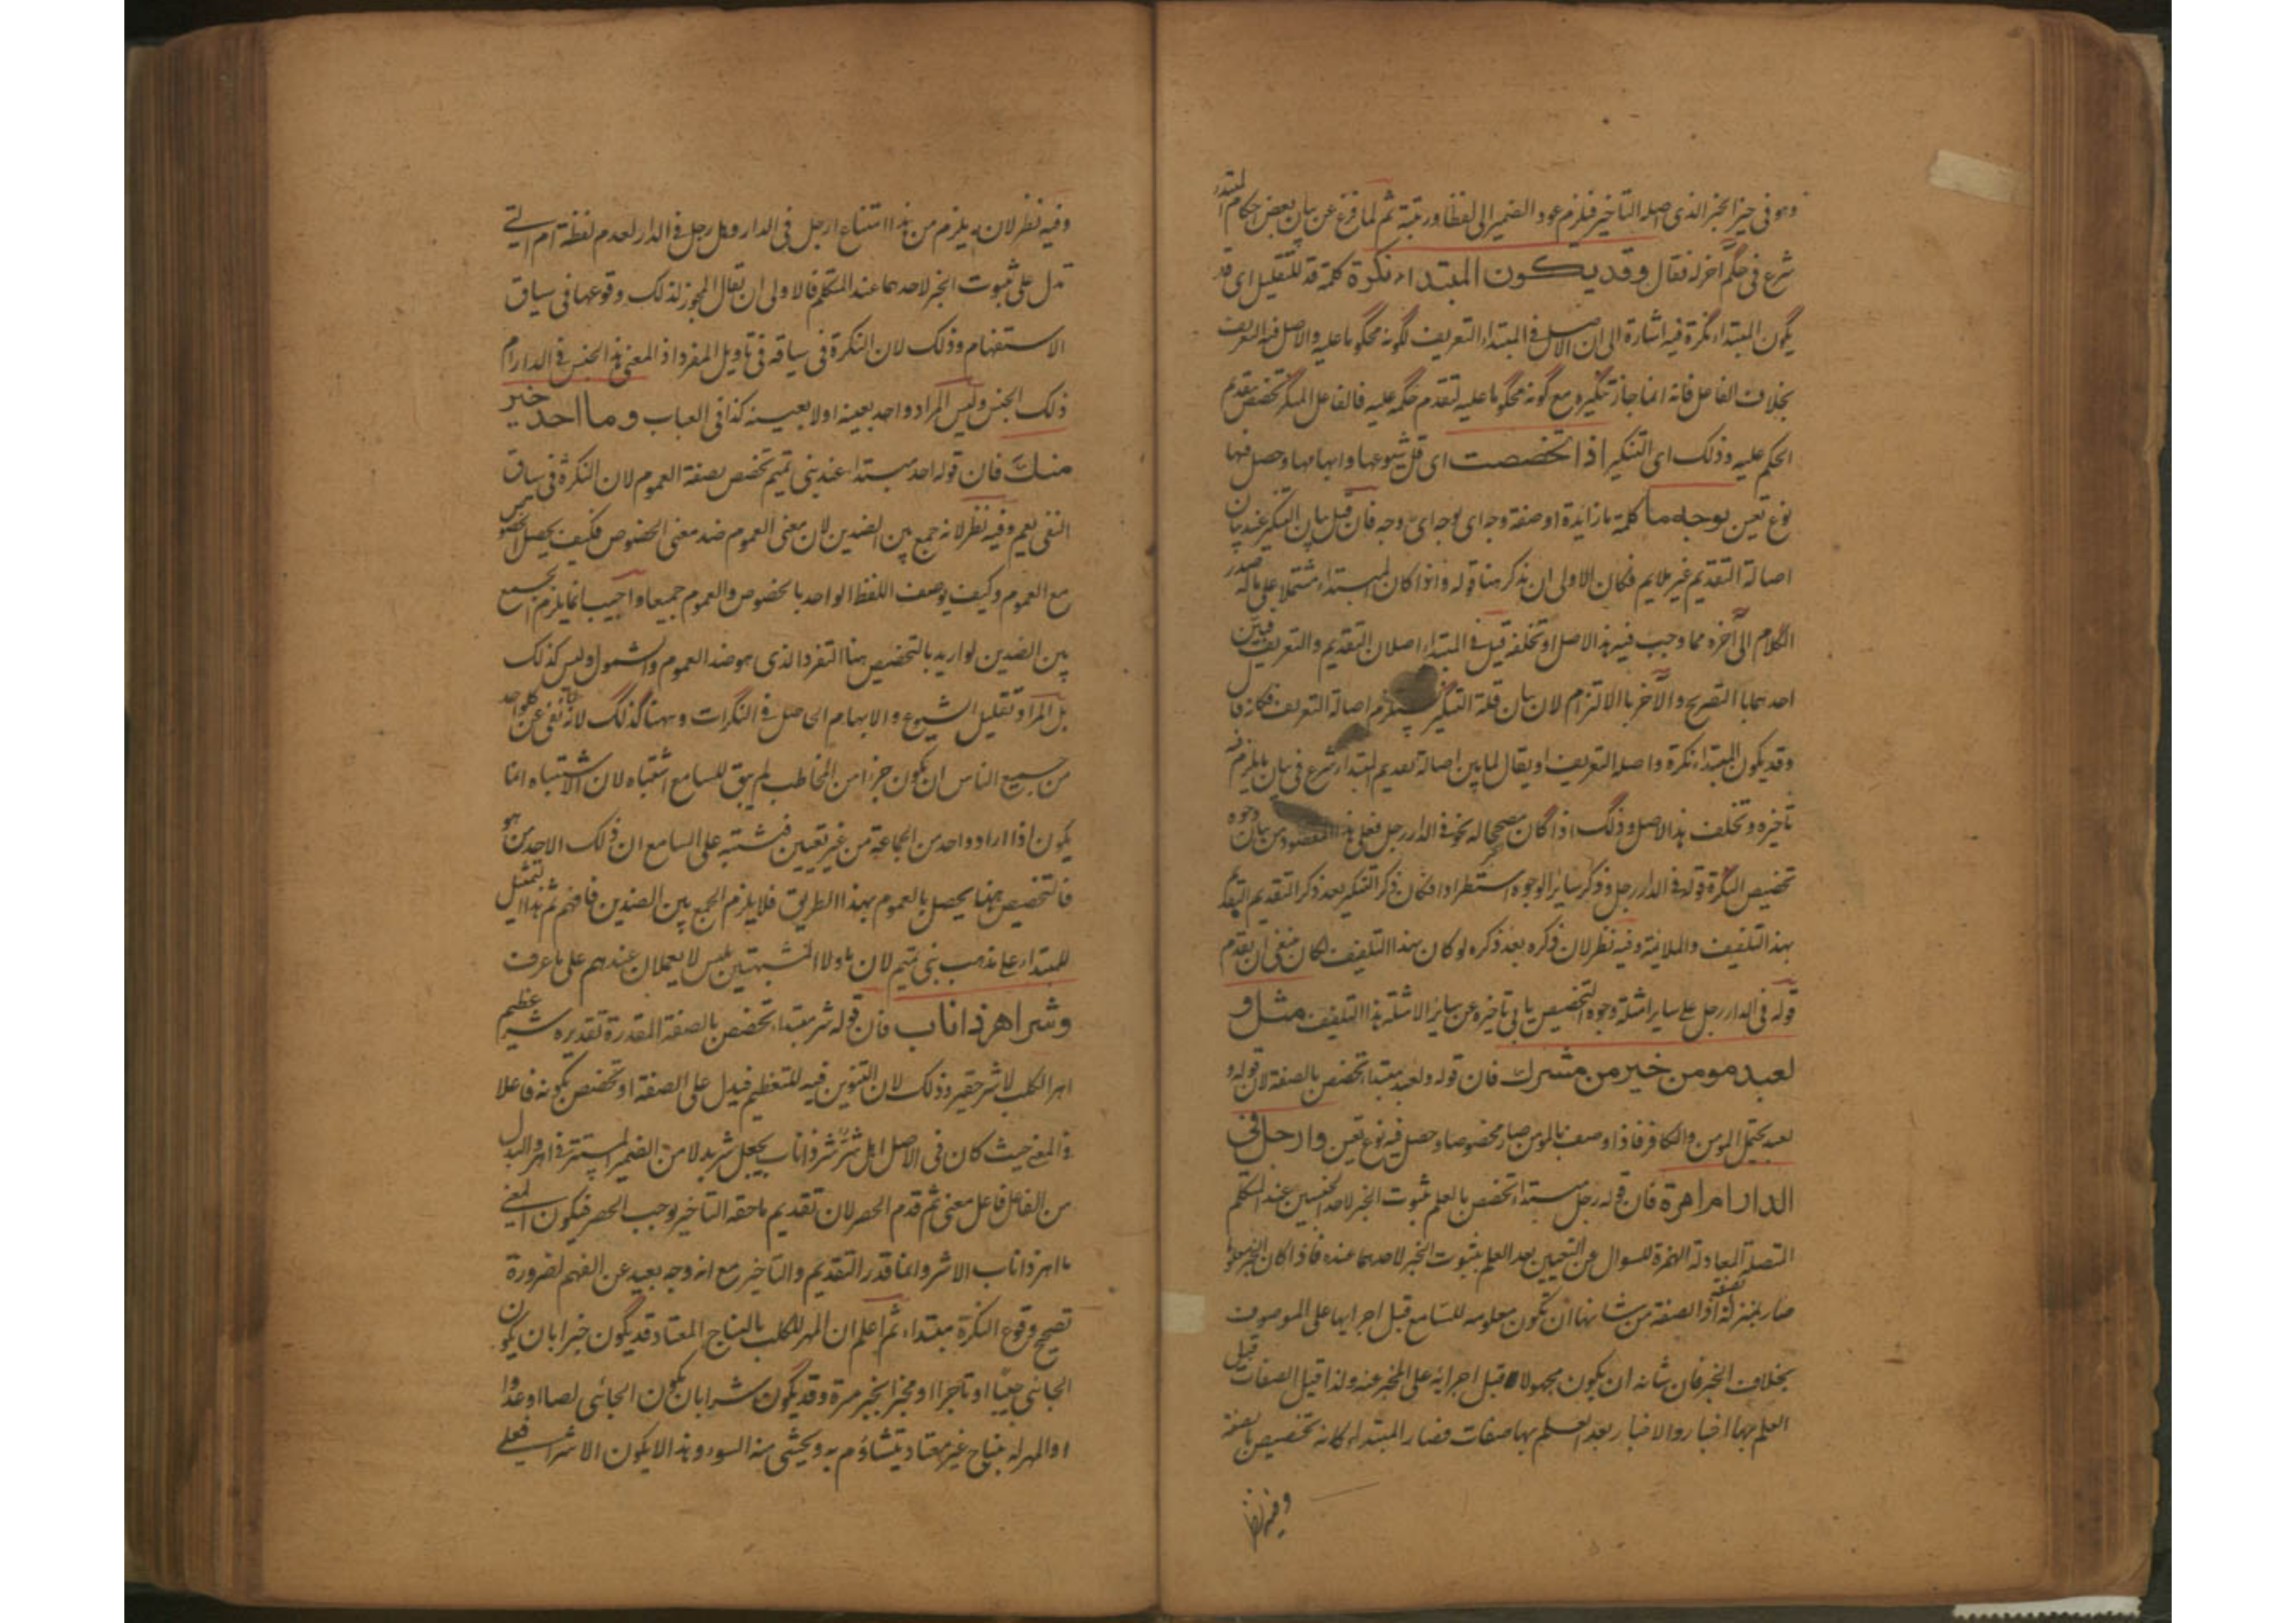 وهو فى حيز الخبر الذى اصله التاخير فيلزم عود الضمير الى لفظا ورتبة ثم لما فرغ عن بيان بعض احكام المبتدأ
شرع فى حكم آخر له فقال وقد يكون المبتداء نكرة كلمة قد للتقليل اى قد
يكون المبتداء نكرة فيه اشارة الى ان الاصل فى المبتداء التعريف لكونه محكوما عليه والاصل فيه التعريف
بخلاف الفاعل فانه انما جاز تنكيره مع كونه محكوما عليه لتقدم حكمه عليه فالفاعل المنكر تخصص بتقديم
الحكم عليه وذلك اى التنكير اذا تخصصت اى قل شيوعها وابهامها وحصل فيها
نوع تعين بوجه ما كلمة ما زايدة او صفة وجه اى بوجه اى وجه فان قيل بيان التنكير عند بيان
اصالة التقديم غير ملايم فكان الاولى ان يذكر هنا قوله واذا كان المبتداء مشتملا على ما له صدر
الكلام الى آخره مما وجب فيه هذا الاصل او تخلفه قيل فى المبتداء اصلان التقديم والتعريف فبين
احدهما بالتصريح والآخر بالالتزام لان بيان قلة التنكير يستلزم اصالة التعريف فكانه قال
وقد يكون المبتداء نكرة واصله التعريف او يقال لما بين اصالة تقديم المبتداء شرع فى بيان ما يلزم فيه
تاخيره وتخلف هذا الاصل وذلك اذا كان مصححا له نحو فى الدار رجل فعلى هذا المقصود من بيان وجوه
تخصيص النكرة قوله فى الدار رجل وذكر سائر الوجوه استطرادا فكان ذكر التنكير بعد ذكر التقديم
بهذا التلفيف والملائمة وفيه نظر لان ذكره بعد ذكره لو كان بهذا التلفيف لكان ينبغى ان يقدم
قوله فى الدار رجل على سائر امثلة وجوه التخصيص يابى تاخيره عن سائر الامثلة هذا التلفيف مثل و
لعبد مومن خير من مشرك فان قوله ولعبد مبتداء تخصص بالصفة لان قوله و
لعبد يحتمل المومن والكافر فاذا وصف بالمومن صار مخصوصا وحصل فيه نوع تعين وارجل فى
الدار ام امراة فان قوله رجل مبتداء تخصص بالعلم ثبوت الخبر لاحد الجنسين عند المتكلم
المتصلة المعادلة الهمزة للسوال عن التعيين بعد العلم بثبوت الخبر لاحدهما عنده فاذا كان الخبر معلوما
صار بمنزلة صفته اذ الصفة من شانها ان تكون معلومه للسامع قبل اجرايها على الموصوف
بخلاف الخبر فان شانه ان يكون مجهولا قبل اجرائه على المخبر عنه ولذا قيل الصفات قبل
العلم بها اخبار والاخبار بعد العلم بها صفات فصار المبتداء كانه تخصيص بالصفة
وفيه نظر
وفيه نظر لانه يلزم من هذا امتناع ارجل فى الدار وهل رجل فى الدار لعدم لفظة ام التى
تدل على ثبوت الخبر لاحدهما عند المتكلم فالاولى ان يقال المجوز لذلك وقوعها فى سياق
الاستفهام وذلك لان النكرة فى سياقه فى تاويل المفرد اذ المعنى هذا الجنس فى الدار ام
ذلك الجنس وليس المراد واحد بعينه اولا بعينه كذا فى العباب وما احد خير
منك فان قوله احد مبتداء عند بنى تميم تخصص بصفة العموم لان النكرة فى سياق
النفى يعم وفيه نظر لانه جمع بين الضدين لان معنى العموم ضد معنى الخصوص فكيف يحصل الخصوص
مع العموم وكيف يوصف اللفظ الواحد بالخصوص والعموم جميعا واجيب انما يلزم الجمع
بين الضدين لو اريد بالتخصيص هنا التفرد الذى هو ضد العموم والشمول وليس كذلك
بل المراد تقليل الشيوع والابهام الحاصل فى النكرات وههنا كذلك لانه اذا نفى عن كل واحد
من جميع الناس ان يكون خيرا من المخاطب لم يبق للسامع اشتباه لان الاشتباه انما
يكون اذا اراد واحد من الجماعة من غير تعيين فيشتبه على السامع ان ذلك الاحد من هو
فالتخصيص ههنا يحصل بالعموم بهذا الطريق فلا يلزم الجمع بين الضدين فافهم ثم هذا التمثيل
للمبتداء على مذهب بنى تميم لان ما ولا المشبهتين بليس لا يعملان عندهم على ما عرفت
وشر اهر ذا ناب فان قوله شر مبتداء تخصص بالصفة المقدرة تقديره شر عظيم
اهر الكلب لا شر حقير وذلك لان التنوين فيه للتعظيم فيدل على الصفة او تخصص بكونه فاعلا
فى المعنى حيث كان فى الاصل اهر شر ذا ناب يجعل شر بدلا من الضمير المستتر فى اهر والبدل
من الفاعل فاعل معنى ثم قدم الحصر لان تقديم ما حقه التاخير يوجب الحصر فيكون المعنى
ما اهر ذا ناب الا شر وانما قدر التقديم والتاخير مع انه وجه بعيد عن الفهم لضرورة
تصحيح وقوع النكرة مبتداء ثم اعلم ان المهر للكلب بالنباح المعتاد قد يكون خيرا بان يكون
الجائى حبيبا او تاجرا او مخبرا بخبر مسرة وقد يكون شرا بان يكون الجائى لصا او عدوا
او المهر له بنباح غير معتاد يتشاؤم به ويخشى منه السوء وهذا لا يكون الا شرا فعلى